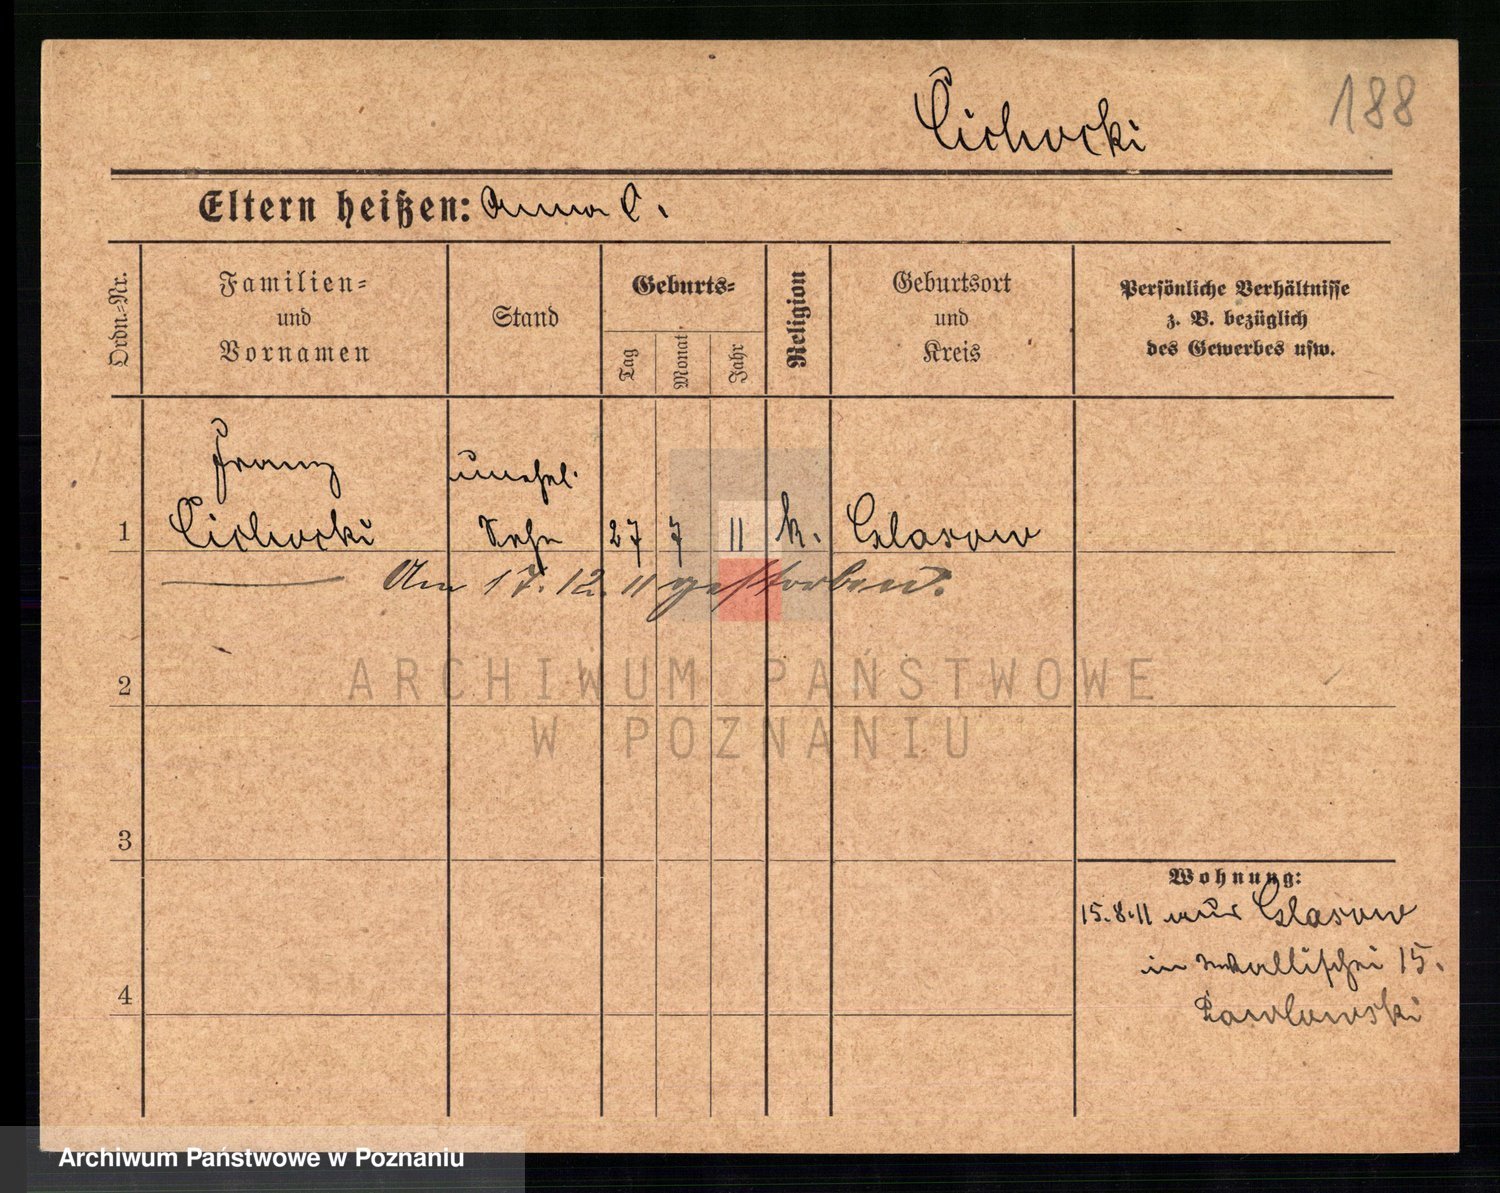 188
Cichocki
Eltern heißen: Anna C.
Ordn.-Nr.
Familien-
und
Vornamen
Stand
Geburts-
Tag
Monat
Jahr
Religion
Geburtsort
und
Kreis
Persönliche Verhältnisse
z. B. bezüglich
des Gewerbes usw.
Franz unehel.
1 Cichocki Sohn 27 7 11 k. Glasow
Am 17.12.11 gestorben.
2
ARCHIWUM PAŃSTWOWE
W POZNANIU
3
Wohnung:
15.8.11 aus Glasow
in Wallischei 15.
4
Pawlowski
Archiwum Państwowe w Poznaniu